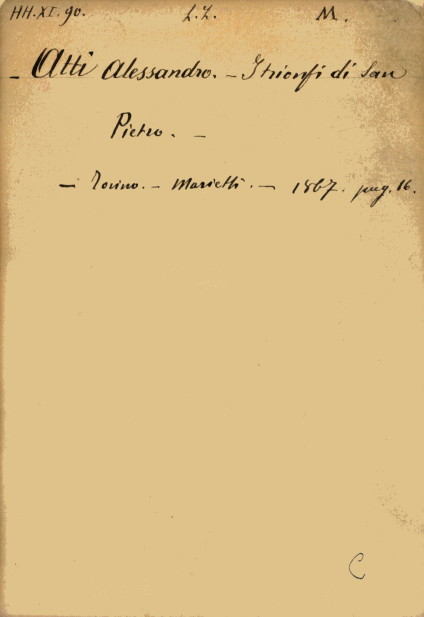 HH.XI.90. L.L. M.
- Atti Alessandro. - I trionfi di San
Pietro. -
- Torino. - Marietti. - 1867. pag. 16.
C